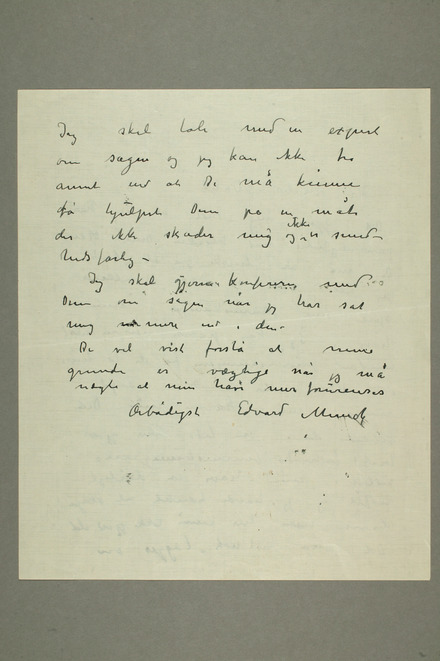 Jeg skal tale med en expert
om sagen og jeg kan ikke tro
annet end at De må kunne
få hjulpet Dem på en måte
der ikke skader mig og ikke er sund-
hedsfarlig –
Jeg skal gjerne konferere med
Dem om sagen når jeg har sat
mig nærmere ind i den.
De vil vist forstå at mine
grunde er vægtige når jeg må
nægte at min have mer forurenses
Ærbødigst Edvard Munch